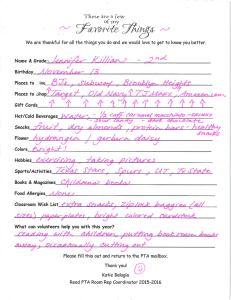 These are a few
of my
Favorite Things
We are thankful for all the things you do and we would love to get to know you better.
Name & Grade Jennifer Killian - 2nd
Birthday November 13
Places to BJs, Subway, Brooklyn Height
Places to Shop Target, Old Navy, TJ Maxx, Amazon.com
Gift Cards ↑ ↑ ↑ ↑ ↑ ↑ ↑
Hot/Cold Beverages Water - 1/2 caff caramel macchiato
Snacks fruit, dry almonds, protein bars - healthy snacks
Flower hydrangea / gerbera daisy
Colors bright!
Hobbies exercising taking pictures
Sports/Activities Texas Stars, Spurs, UT, Te State
Books & Magazines Childrens books
Food Allergies None
Classroom Wish List extra snacks, ziplock baggies (all
sizes), paper plates, bright colored cardstock
What can volunteers help you with this year?
reading with children, putting book room books
away, occasionally cutting out
Please fill this out and return to the PTA mailbox.
Thank you!
Katie Balagia
Read PTA Room Rep Coordinator 2015-2016